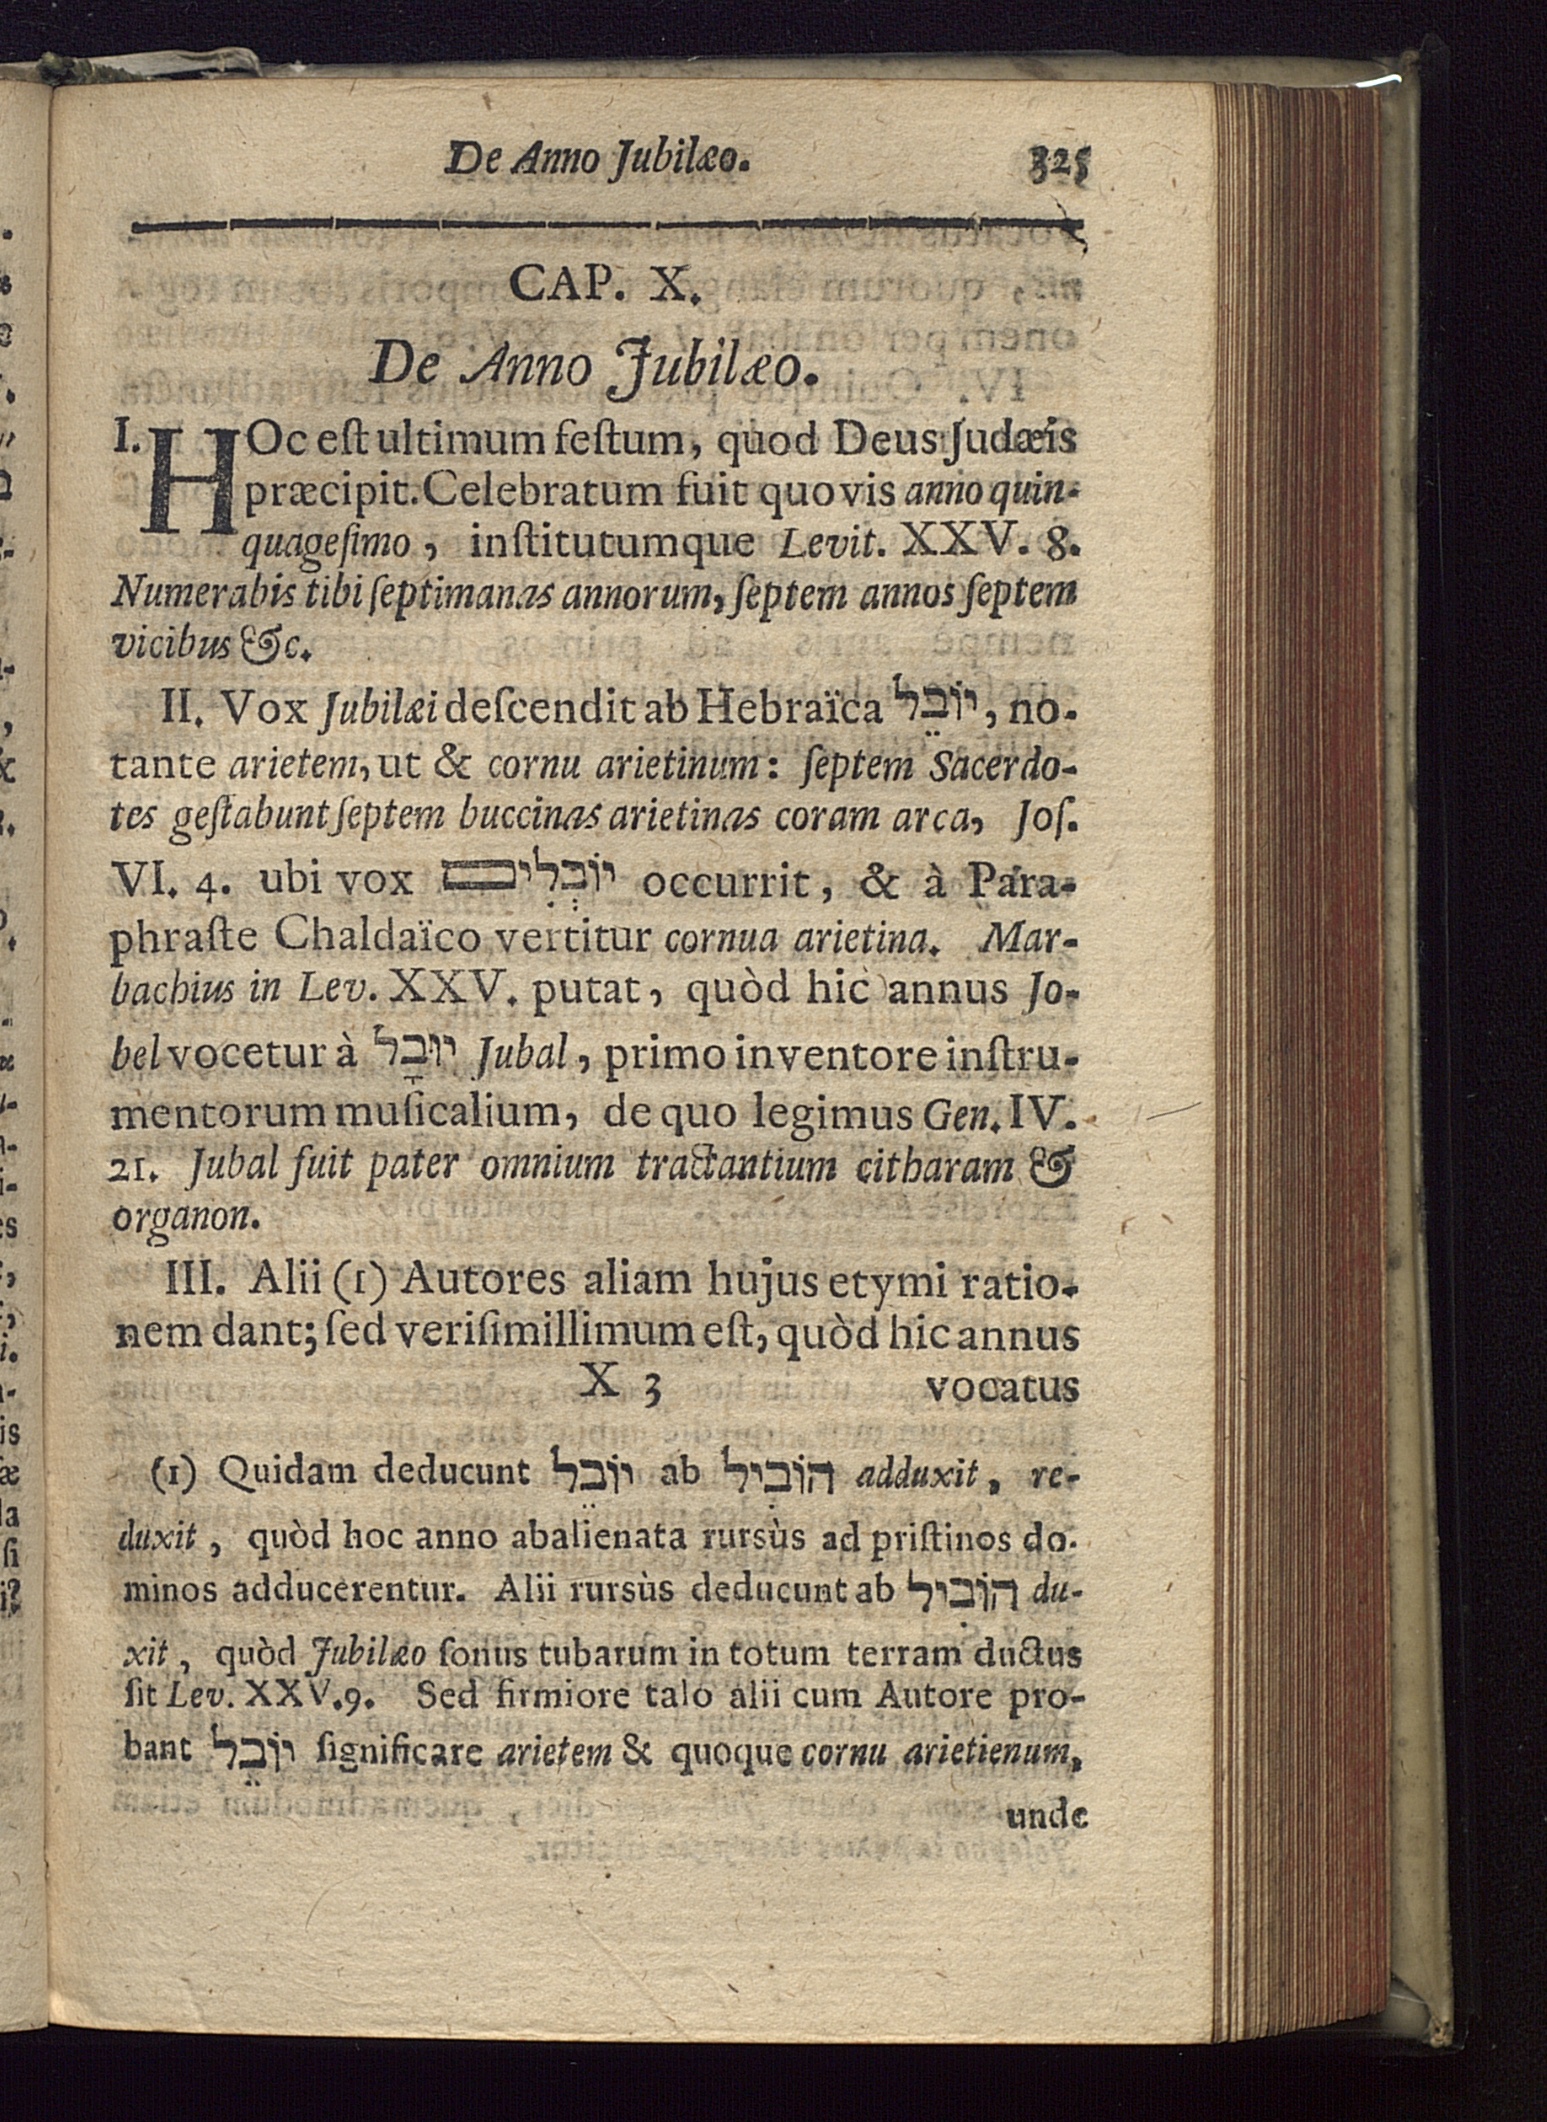 De Anno Jubilæo. 325
CAP. X.
De Anno Jubilæo.
I. HOc eſt ultimum feſtum, quod Deus Judæis
præcipit. Celebratum fuit quovis anno quin-
quageſimo, inſtitutumque Levit. XXV. 8.
Numerabis tibi ſeptimanas annorum, ſeptem annos ſeptem
vicibus &c.
II. Vox Jubilæi deſcendit ab Hebraïca יוֹבֵל, no-
tante arietem, ut & cornu arietinum: ſeptem Sacerdo-
tes geſtabunt ſeptem buccinas arietinas coram arca, Joſ.
VI. 4. ubi vox יוֹבְלִים occurrit, & à Para-
phraſte Chaldaïco vertitur cornua arietina. Mar-
bachius in Lev. XXV. putat, quòd hic annus Jo-
bel vocetur à יוּבָל Jubal, primo inventore inſtru-
mentorum muſicalium, de quo legimus Gen. IV.
21. Jubal fuit pater omnium tractantium citharam &
organon.
III. Alii (1) Autores aliam hujus etymi ratio-
nem dant; ſed veriſimillimum eſt, quòd hic annus
X 3 vocatus
(1) Quidam deducunt יוֹבֵל ab הוֹבִיל adduxit, re-
duxit, quòd hoc anno abalienata rursùs ad priſtinos do-
minos adducerentur. Alii rursùs deducunt ab הוֹבִיל du-
xit, quòd Jubilæo ſonus tubarum in totum terram ductus
ſit Lev. XXV. 9. Sed firmiore talo alii cum Autore pro-
bant יוֹבֵל ſignificare arietem & quoque cornu arietienum,
unde